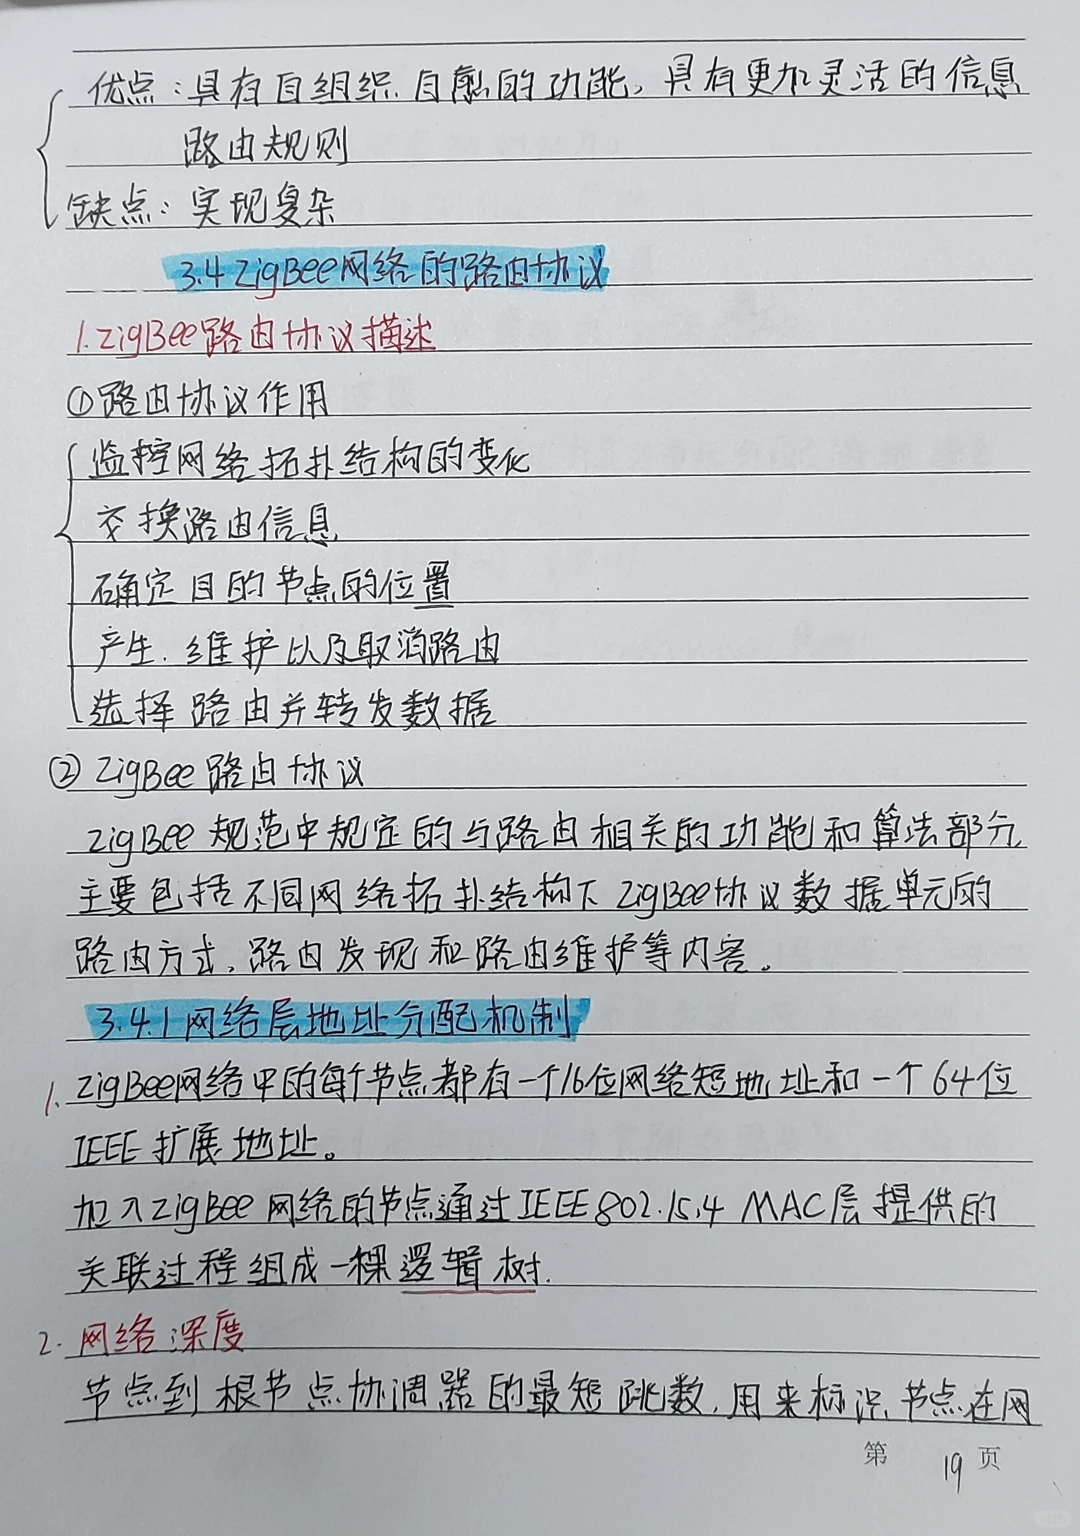 优点：具有自组织、自愈的功能，具有更加灵活的信息
路由规则
缺点：实现复杂
3.4 ZigBee网络的路由协议
1. ZigBee路由协议描述
①路由协议作用
监控网络拓扑结构的变化
交换路由信息
确定目的节点的位置
产生、维护以及取消路由
选择路由并转发数据
② ZigBee路由协议
ZigBee规范中规定的与路由相关的功能和算法部分，
主要包括不同网络拓扑结构下ZigBee协议数据单元的
路由方式、路由发现和路由维护等内容。
3.4.1 网络层地址分配机制
1. ZigBee网络中的每个节点都有一个16位网络短地址和一个64位
IEEE扩展地址。
加入ZigBee网络的节点通过IEEE802.15.4 MAC层提供的
关联过程组成一棵逻辑树.
2. 网络深度
节点到根节点协调器的最短跳数，用来标识节点在网
第 19 页